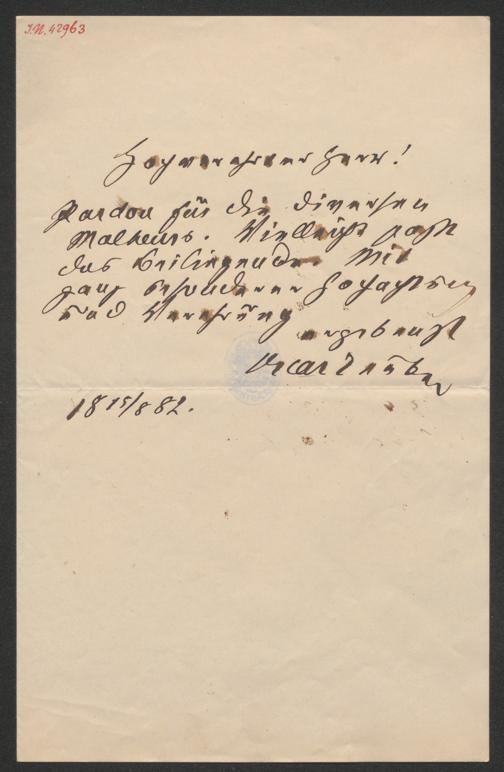 I.N. 42963
Hochverehrter Herr!
Pardon für die diversen
Malheurs. Vielleicht paßt
das Beiliegende. Mit
ganz besonderer Hochachtung
und Verehrung
ergebenst
Oscar Teuber
18 15/8 82.